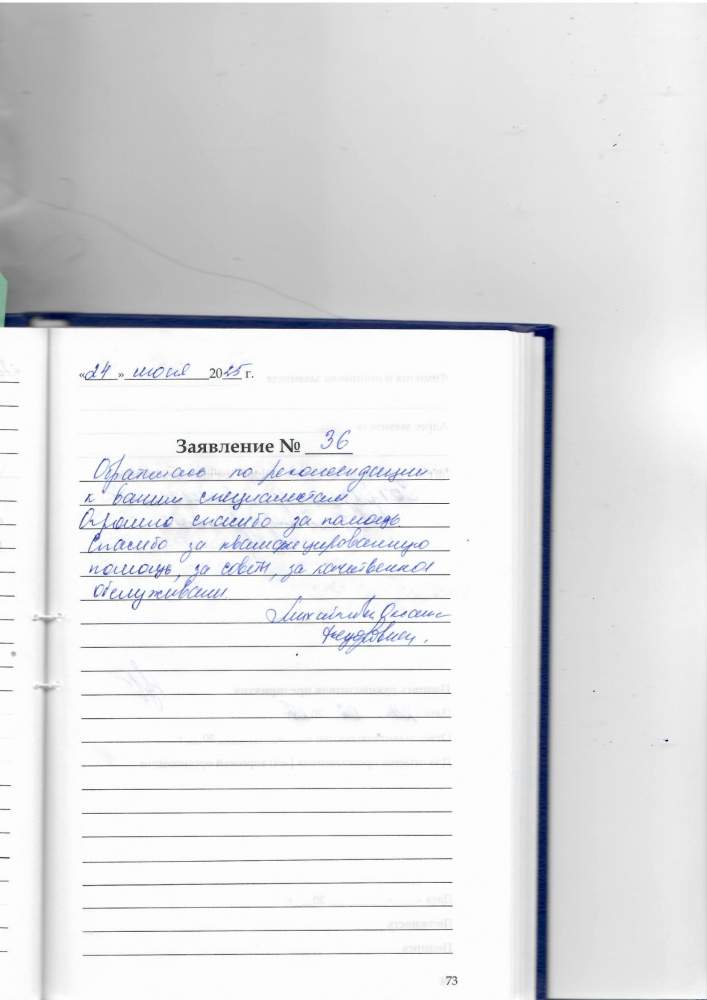 «24» июня 2025 г.
Заявление № 36
Обратилась по рекомендации
к вашим специалистам
Огромно спасибо за помощь
Спасибо за квалифицированную
помощь, за советы, за качественное
обслуживани.
73